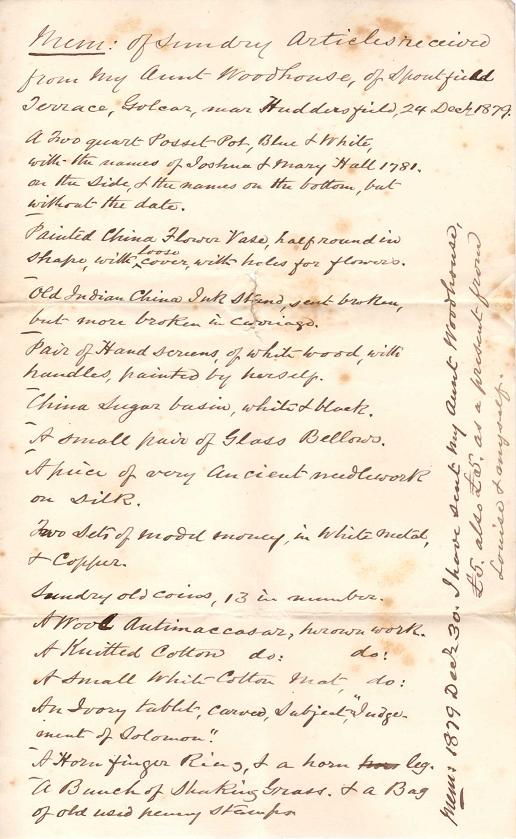 Mem: of Sundry Articles received
from My Aunt Woodhouse, of Spoutfield
Terrace, Golcar, near Huddersfield, 24 Dec. 1879.
A Two quart Posset Pot, Blue & White,
with the names of Joshua & Mary Hall 1781.
on the side, & the names on the bottom, but
without the date.
Painted China Flower Vase, half round in
shape, with loose cover, with holes for flowers.
Old Indian China Ink Stand, sent broken,
but more broken in carriage.
Pair of Hand screens, of white wood, with
handles, painted by herself.
China Sugar basin, white & black.
A small pair of Glass Bellows.
A piece of very Ancient needlework
on silk.
Two Sets of model money, in White Metal,
& Copper.
Sundry old coins, 13 in number.
A Wool Antimaccasar, her own work.
A Knitted Cotton do: do:
A small White Cotton Mat, do:
An Ivory tablet, carved, Subject, "Judge-
ment of Solomon".
A Horn finger Ring, & a horn leg.
A Bunch of Shaking Grass. & a Bag
of old used penny Stamps
Mem: 1879 Dec. 30. I have sent my Aunt Woodhouse,
£5. also £5. as a present from
Louise & myself.